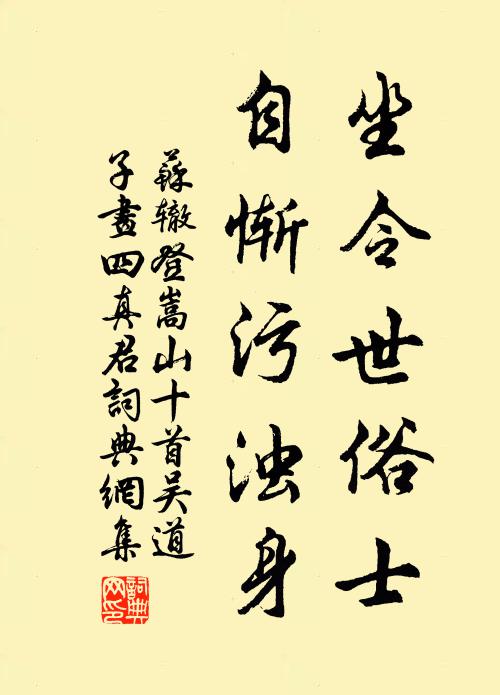 坐令世俗士
自惭污浊身
蘇辙登嵩山十首吴道
子畫四真君詞典網集
詞典网印